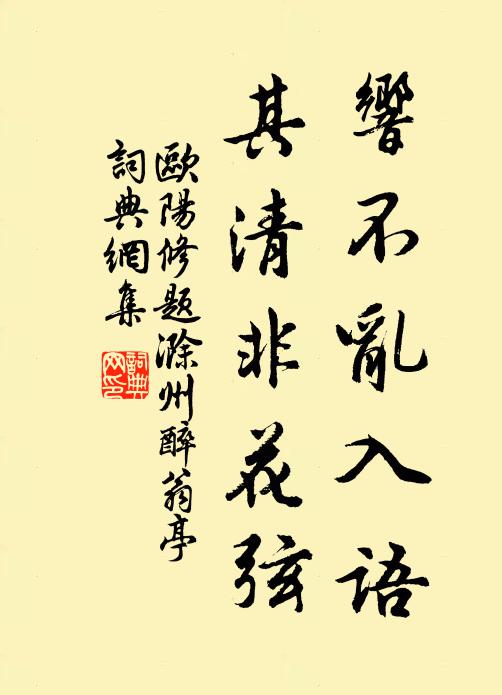 響不亂入語
其清非花弦
歐陽修題滁州醉翁亭
詞典網集
詞典
网印